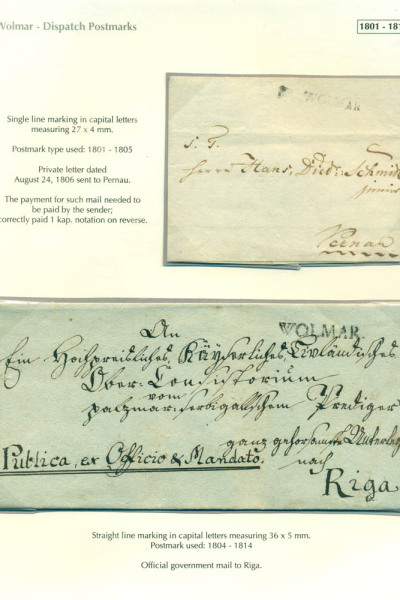 Wolmar - Dispatch Postmarks
1801 - 181
Single line marking in capital letters
measuring 27 x 4 mm.
Postmark type used: 1801 - 1805
Private letter dated
August 24, 1806 sent to Pernau.
The payment for such mail needed to
be paid by the sender;
correctly paid 1 kap. notation on reverse.
WOLMAR
S. T.
Herrn Hans Died: Schmid
junior
Pernau
WOLMAR
An
Ein Hochpreisliches Käyserliches Livländisches
Ober-Consistorium
vom
Prediger
ganz gehorsamste
Publica, ex Officio & Mandato.
nach
Riga
Straight line marking in capital letters measuring 36 x 5 mm.
Postmark used: 1804 - 1814
Official government mail to Riga.